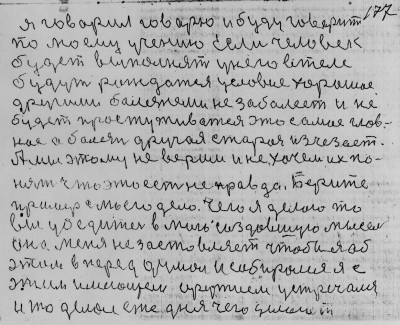 177
я говорил говорю и буду говорит
по моему учению если человек
будет выполнят у него в теле
будут рождатся условие хорошое
другими болезнями не заболеет и не
будет простуживатся это самое глов-
ное а болезн другая старая изчезает.
А мы этому не верим и не хочем их по-
нят что это ест не правда. Берите
пример с моего дело. Чего я делаю то
вы убедитес в мою создавшую мысел
она меня не заставляет чтобы я об
этом вперед думал и собирался я с
этим имеющем
и то делаю еже дня чего